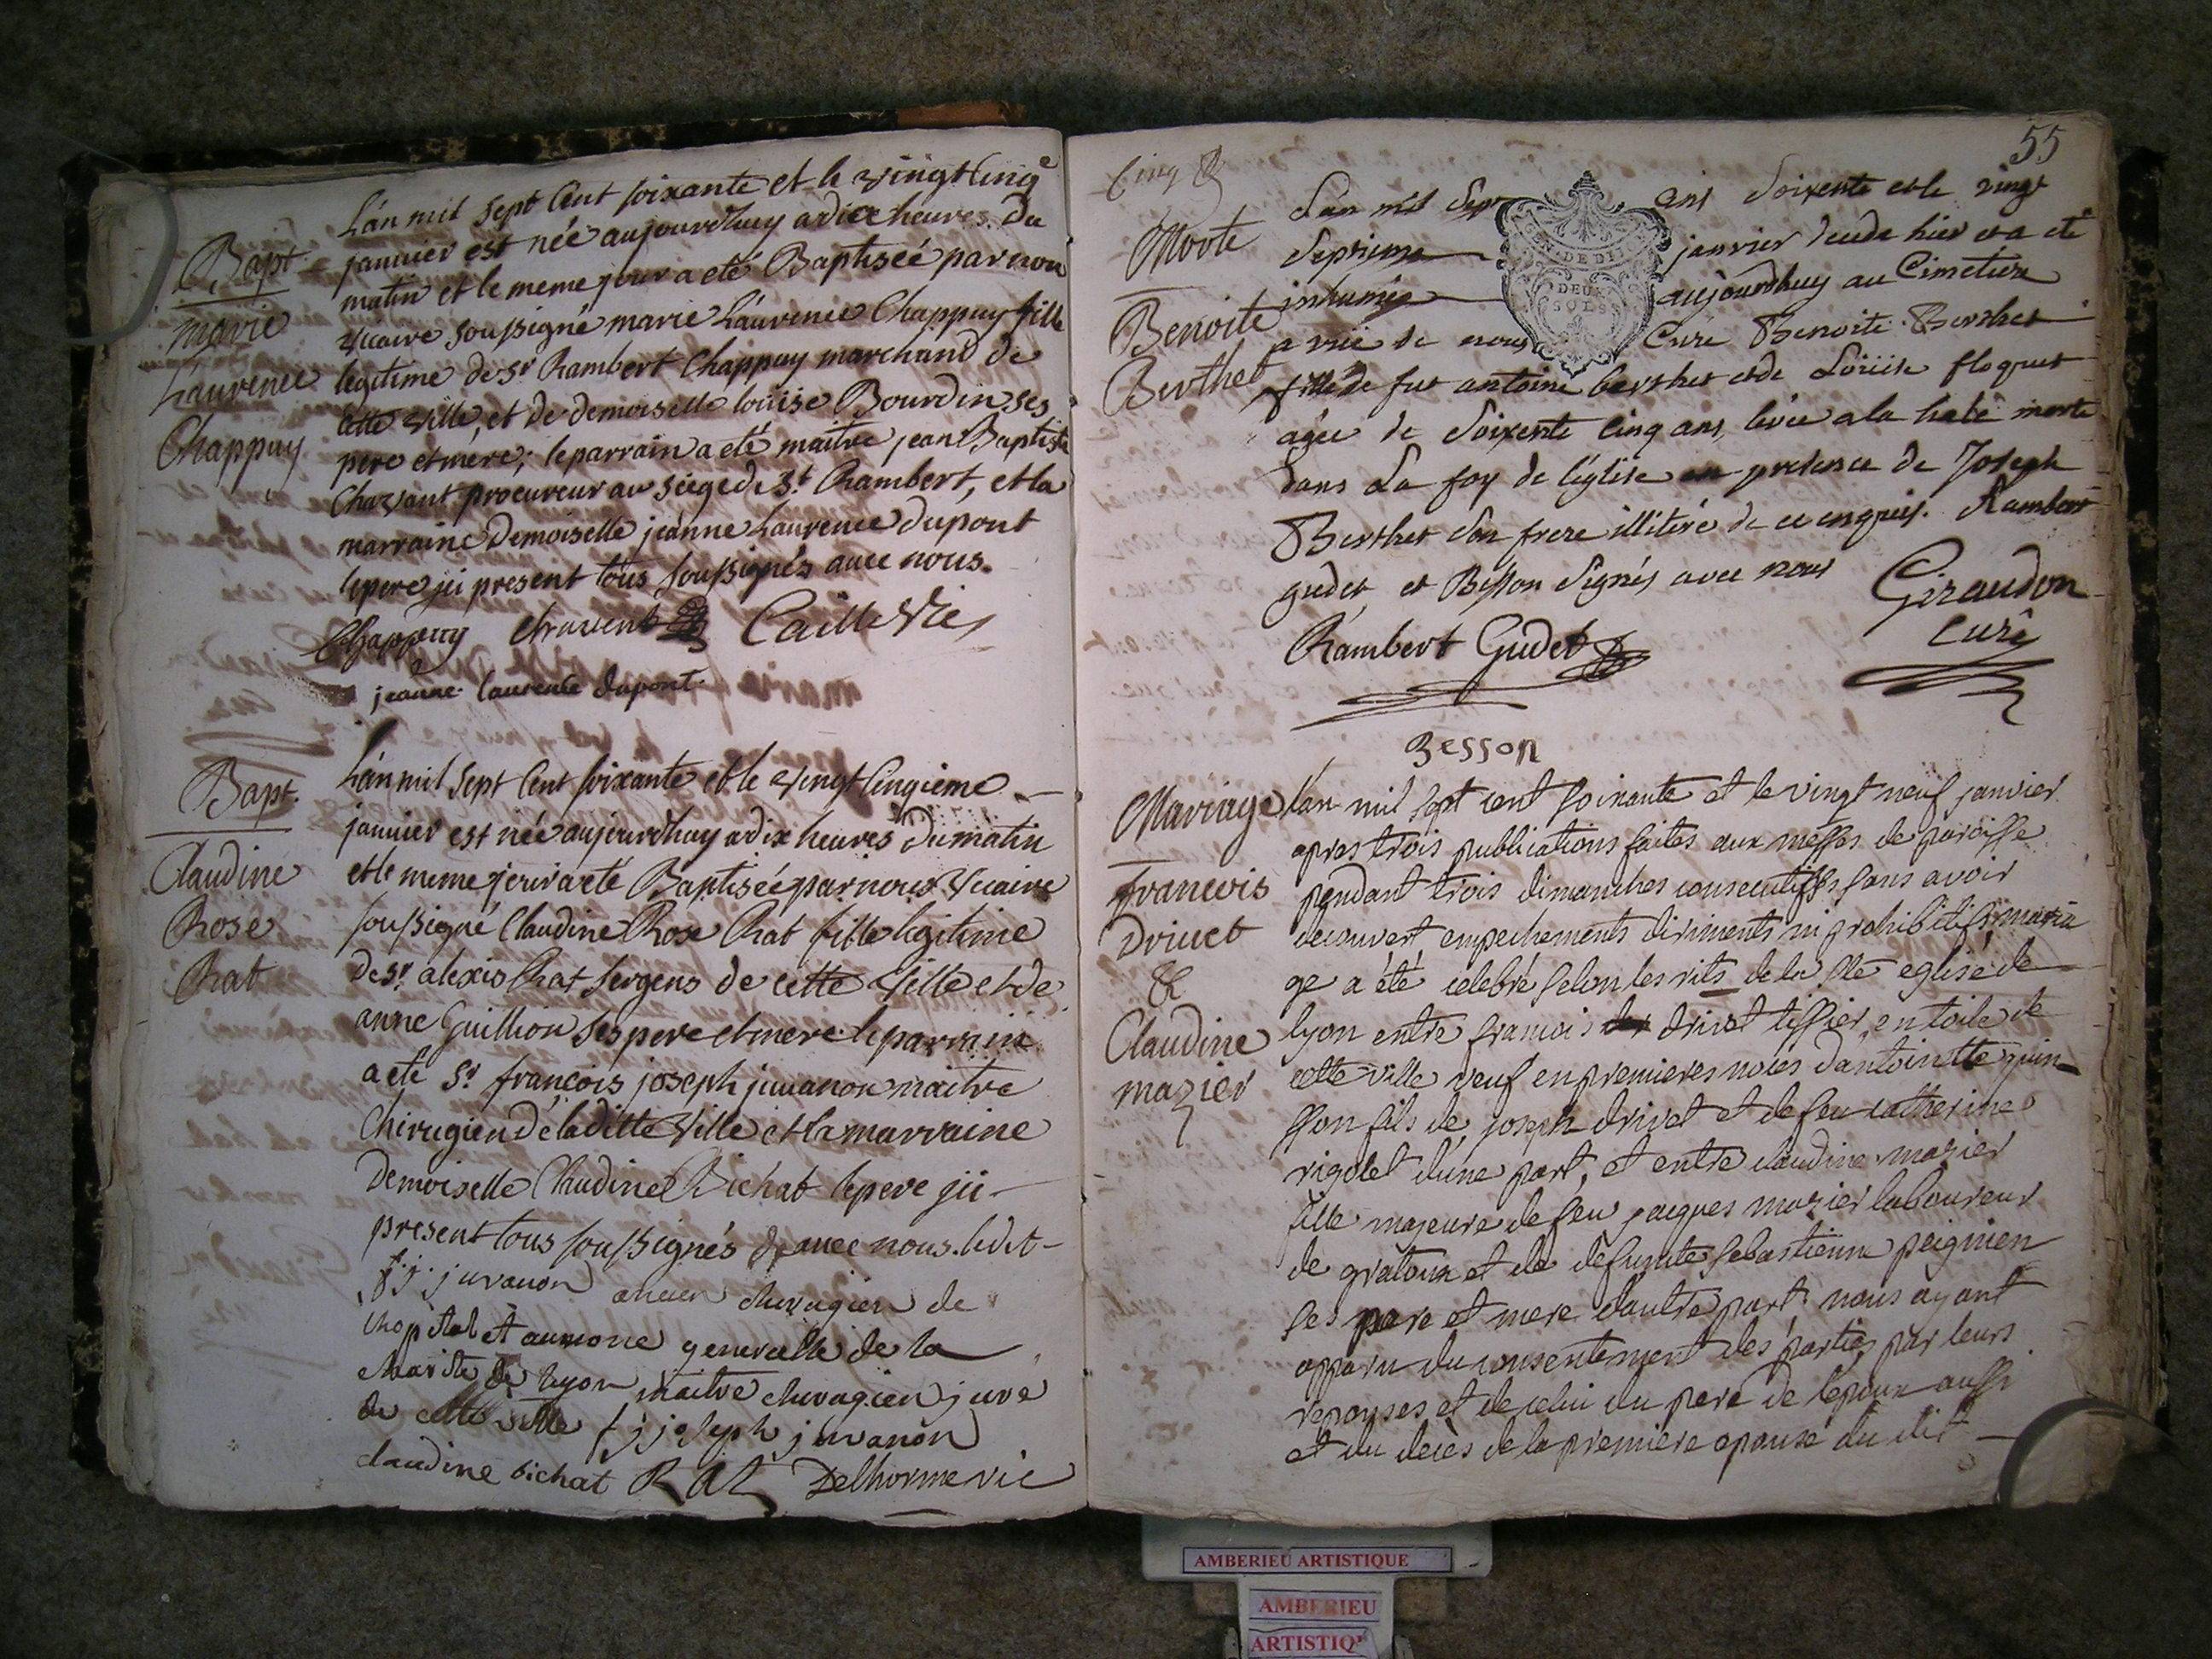 Bapt.
marie
Laurence
Chappuy
L'an mil sept Cent soixante et le vingt Cinq.e
janvier est née aujourdhuy a dix heures du
matin et le meme jour a eté Baptiseé par nou
vicaire soussigné marie Laurence Chappuy fille
legitime de Sr Rambert Chappuy marchand de
cette ville, et de demoiselle loüise Bourdin ses
pere et mere; le parrain a eté maitre jean Baptiste
Charvant procureur au siege de St. Rambert, et la
marraine Demoiselle jeanne Laurence dupont
le pere ici present tous soussignés avec nous.
Chappuy Caille Vic
jeanne laurence dupont
Bapt.
Claudine
Rose
Rat
L'an mil sept Cent soixante et le vingt Cinqieme
janvier est née aujourdhuy a dix heures du matin
et le meme jour a eté Baptiseé par nous vicaire
soussigné Claudine Rose Rat fille legitime
de Sr. alexis Rat sergens de cette ville et de
anne Guillion ses pere et mere le parrain
a eté Sr françois joseph juvanon maitre
Chirugien de laditte ville et la marraine
Demoiselle Claudine Bichat le pere ici
present tous soussignés avec nous. ledit
f. j. juvanon ancien chirugien de
lhopital et aumone generalle de la
charite de lyon maitre chirugien juré
de cette ville f joseph juvanon
claudine bichat RAT Delhorme vic
55
Cinq
Morte
Benoite
Berthet
L'an mil Sept Cent Soixente et le vingt
Septieme janvier decedée hier et a eté
inhumée aujourdhuy au Cimetiere
GEN. DE DIJON
DEUX
SOLS
a vüe de nous Curé Benoite Berthet
fille de feu antoine berthet et de Loüise floquet
agée de Soixente Cinq ans, levée a la hale morte
dans La foy de l'église en presence de Joseph
Berthet Son frere illiteré de ce enquis. Rambert
gudet et Besson Signés avec nous
Giraudon
curé
Rambert Gudet
Besson
Mariage
francois
Drivet
&
Claudine
mazier
l'an mil sept cent soixante et le vingt neuf janvier
apres trois publications faites aux messes de paroisse
pendant trois dimanches consecutifs sans avoir
decouvert empechements diriments ni prohibitifs maria
ge a été celebré selon les rits de la ste eglise de
lyon entre francois drivet tissier en toile de
cette ville veuf en premieres noces d'antoinette quin-
sson fils de joseph drivet et de feu catherine
rigolet d'une part, et entre claudine mazier
fille majeure de feu jacques mazier laboureur
de gratoux et de defunte sebastienne peignien
ses pere et mere d'autre part nous ayant
apparu du consentement des parties par leurs
reponses et de celui du pere de l'epoux aussi
et du decès de la premiere epouse du dit
AMBERIEU ARTISTIQUE
AMBERIEU
ARTISTIQ